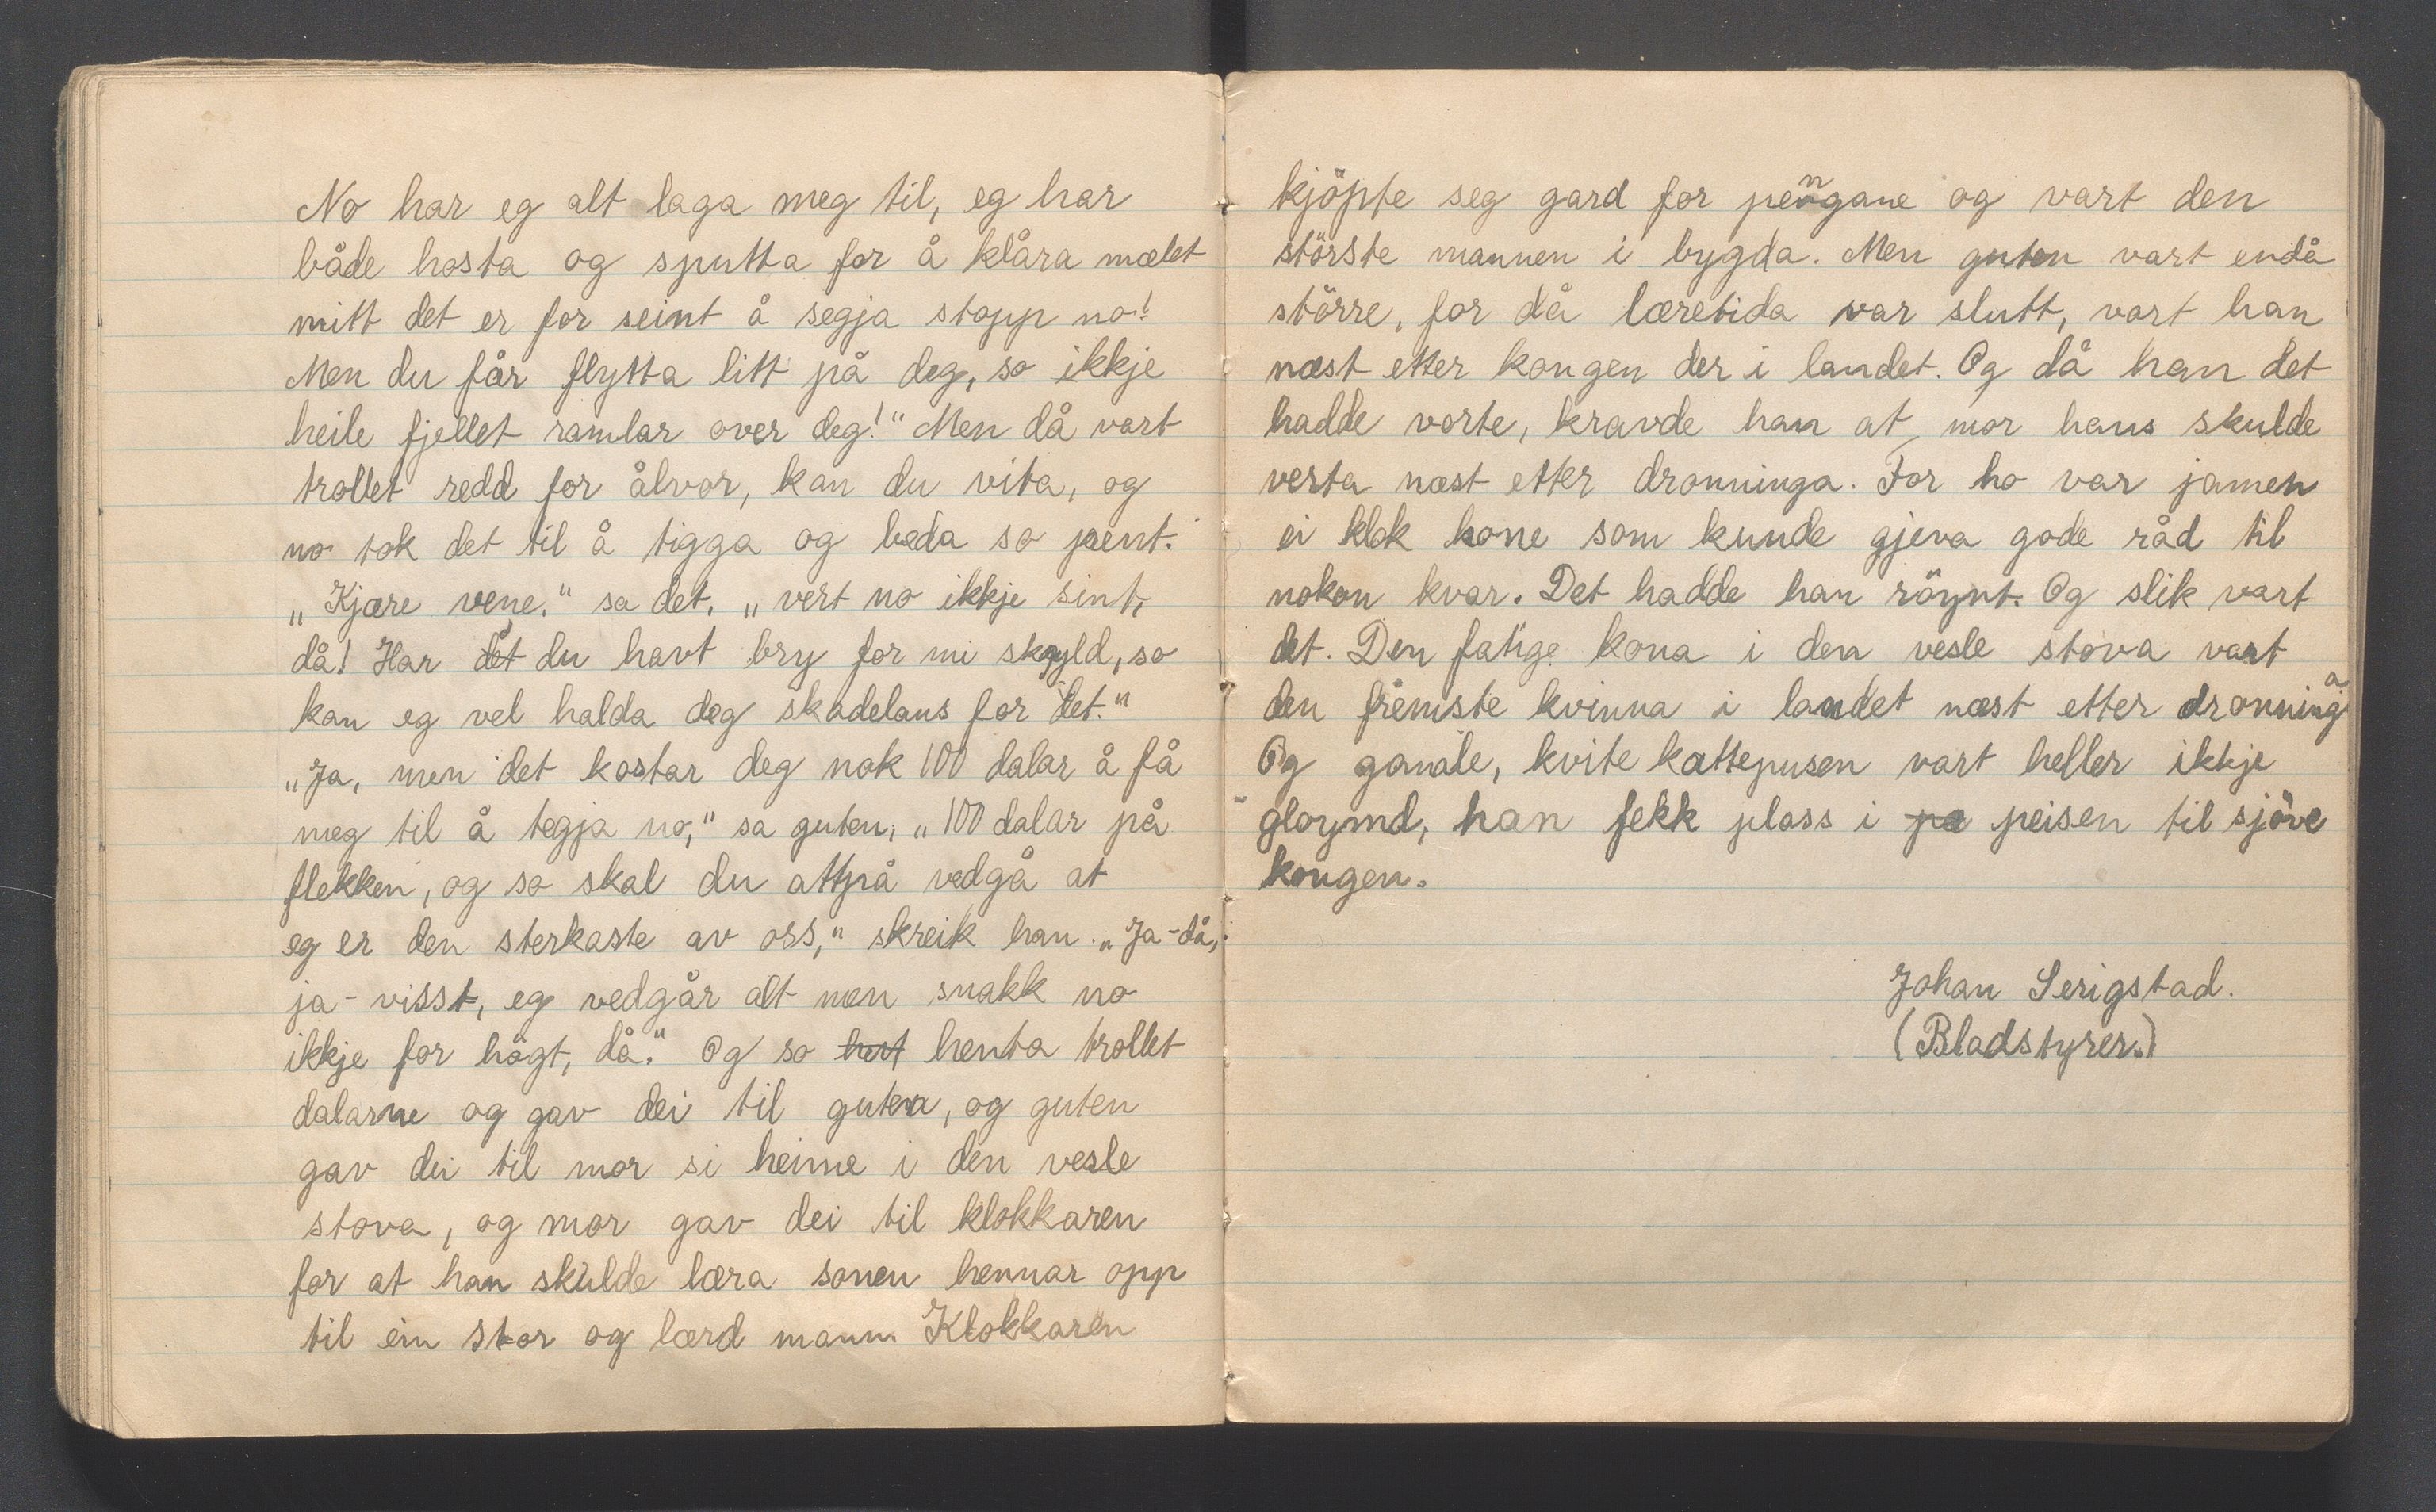 No har eg alt laga meg til, eg har
både hosta og sputta for å klåra mælet
mitt det er for seint å segja stopp no!
Men du får flytta litt på deg, so ikkje
heile fjellet ramlar over deg!" Men då vart
trollet redd for ålvor, kan du vita, og
no tok det til å tigga og beda so pent.
„Kjære vene," sa det, „vert no ikkje sint,
då! Har det du havt bry for mi skyld, so
kan eg vel halda deg skadelaus for det."
„Ja, men det kostar deg nok 100 dalar å få
meg til å tegja no," sa guten, „100 dalar på
flekken, og so skal du attpå vedgå at
eg er den sterkaste av oss," skreik han. „Ja-då,
ja-visst, eg vedgår alt men snakk no
ikkje for högt, då." Og so hent henta trollet
dalarne og gav dei til guten, og guten
gav dei til mor si heime i den vesle
stova, og mor gav dei til klokkaren
for at han skulde læra sonen hennar opp
til ein stor og lærd mann Klokkaren
kjöpte seg gard for pengane og vart den
störste mannen i bygda. Men guten vart endå
större, for då læretida var slutt, vart han
næst etter kongen der i landet. Og då han det
hadde vorte, kravde han at mor hans skulde
verta næst etter dronninga. For ho var jamen
ei klok kone som kunde gjeva gode råd til
nokon kvar. Det hadde han röynt. Og slik vart
det. Den fatige kona i den vesle stova vart
den fremste kvinna i landet næst etter dronninga
Og gamale, kvite kattepusen vart heller ikkje
gloymd, han fekk plass i pa peisen til sjöve
kongen.
Johan Serigstad.
(Bladstyrer.)